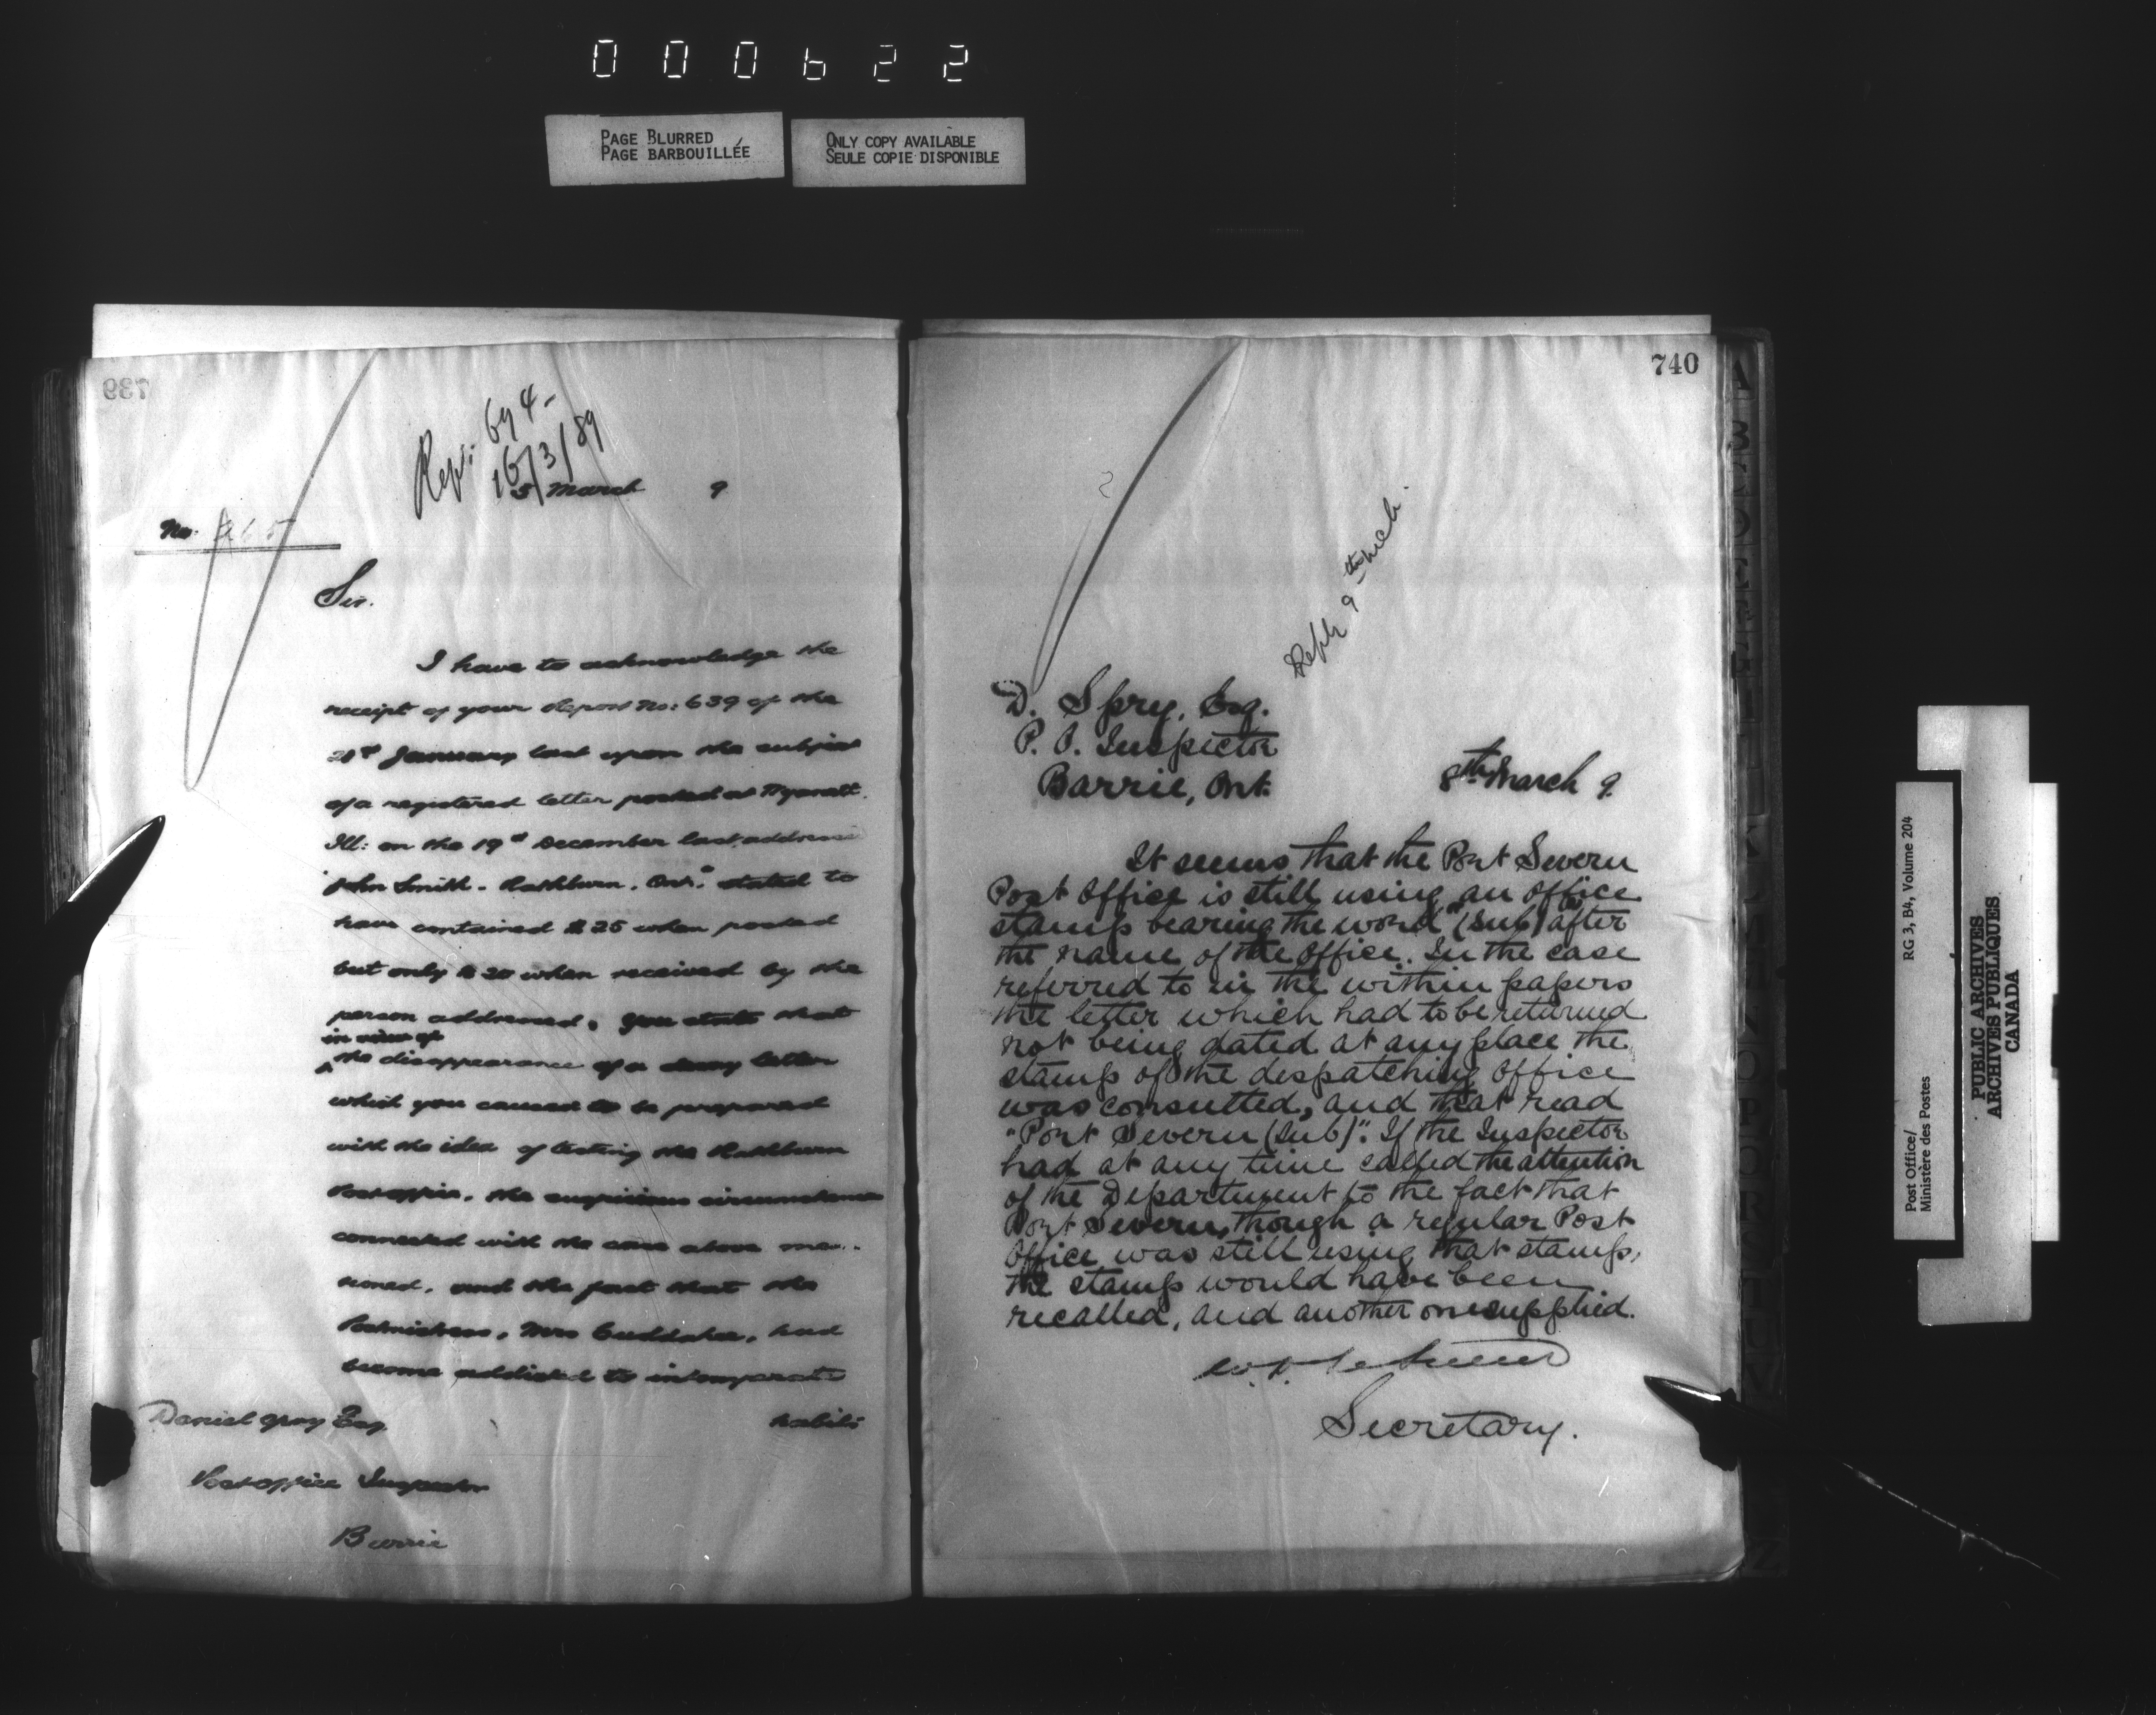 000622
PAGE BLURRED
PAGE BARBOUILLÉE
ONLY COPY AVAILABLE
SEULE COPIE DISPONIBLE
739
Rep: 694-
16/3/89
5 March 9
No. 265
Sir.
I have to acknowledge the
receipt of your Report No: 639 of the
January last upon the subject
of a registered letter posted at
Ill: on the 19th December last, addressed
"John Smith. Rathburn. Ont." stated to
have contained $25 when posted
but only $20 when received by the
person addressed. You state that
in view of
^ the disappearance of a decoy letter
which you caused to be prepared
with the idea of testing the Rathburn
Post office, the suspicious circumstances
connected with the case above men-
tioned, and the fact that the
Postmistress, Mrs Cuddahee, had
become addicted to intemperate
habits
Daniel Spry Esq.
Post office Inspector
Barrie
740
Reply 9th Mch.
D. Spry, Esq.
P. O. Inspector
Barrie, Ont.
8th March 9.
It seems that the Port Severn
Post Office is still using an office
stamp bearing the word "(Sub) after
the name of the office. In the case
referred to in the within papers
the letter which had to be returned
not being dated at any place the
stamp of the despatching office
was consulted, and that read
"Port Severn (Sub)". If the Inspector
had at any time called the attention
of the Department to the fact that
Port Severn, though a regular Post
Office was still using that stamp,
the stamp would have been
recalled, and another one supplied.
Secretary.
Post Office/
Ministère des Postes
RG 3, B4, Volume 204
PUBLIC ARCHIVES
ARCHIVES PUBLIQUES
CANADA